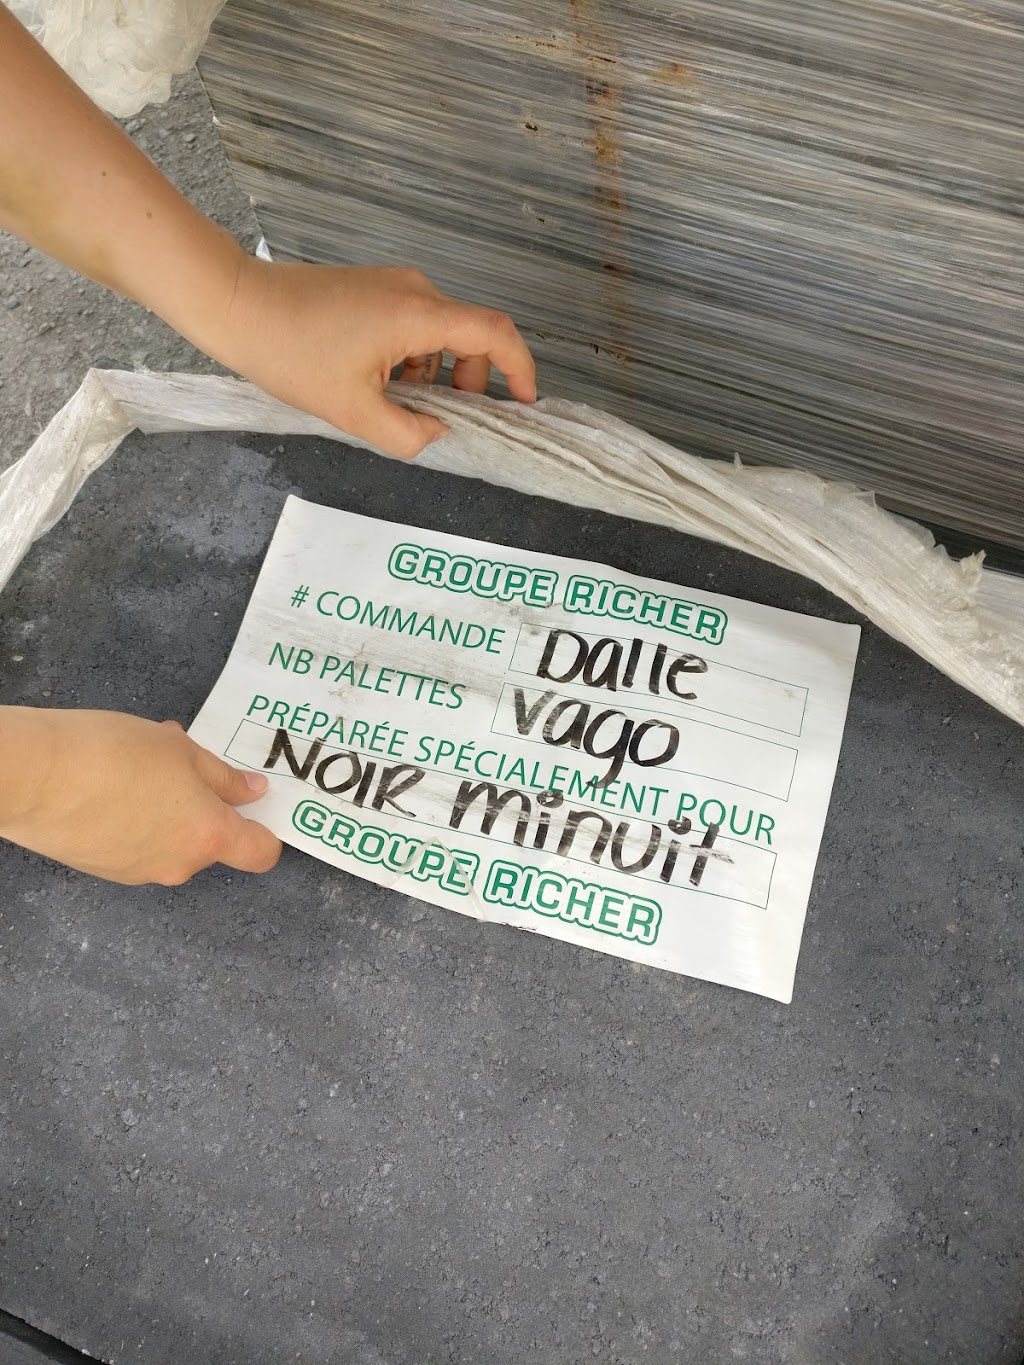 GROUPE RICHER
# COMMANDE Dalle
NB PALETTES Vago
PRÉPARÉE SPÉCIALEMENT POUR
NOIR minuit
GROUPE RICHER